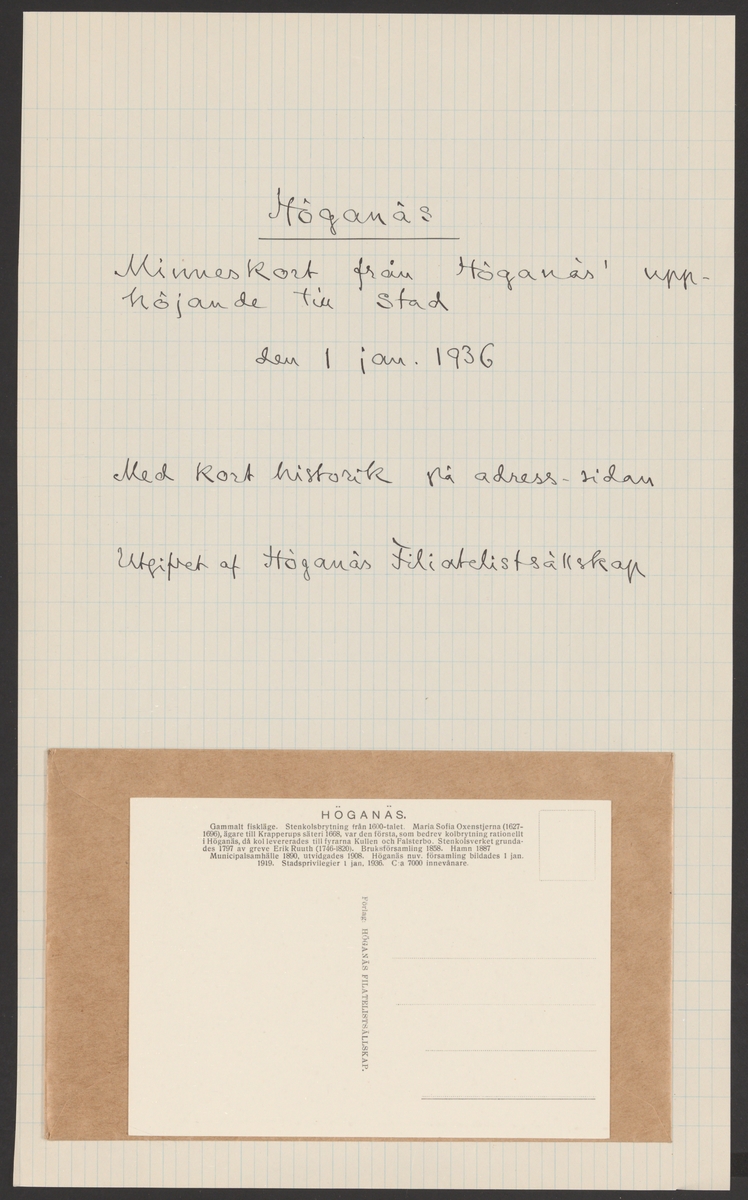 Höganäs
Minneskort från Höganäs' upp-
höjande till stad
den 1 jan. 1936
Med kort historik på adress-sidan
Utgifvet af Höganäs Filiatelistsällskap
HÖGANÄS.
Gammalt fiskläge. Stenkolsbrytning från 1600-talet. Maria Sofia Oxenstjerna (1627-
1696), ägare till Krapperups säteri 1668, var den första, som bedrev kolbrytning rationellt
i Höganäs, då kol levererades till fyrarna Kullen och Falsterbo. Stenkolsverket grunda-
des 1797 av greve Erik Ruuth (1746-1820). Bruksförsamling 1858. Hamn 1887
Municipalsamhälle 1890, utvidgades 1908. Höganäs nuv. församling bildades 1 jan.
1919. Stadsprivilegier 1 jan. 1936. C:a 7000 innevånare.
Förlag: HÖGANÄS FILATELISTSÄLLSKAP.